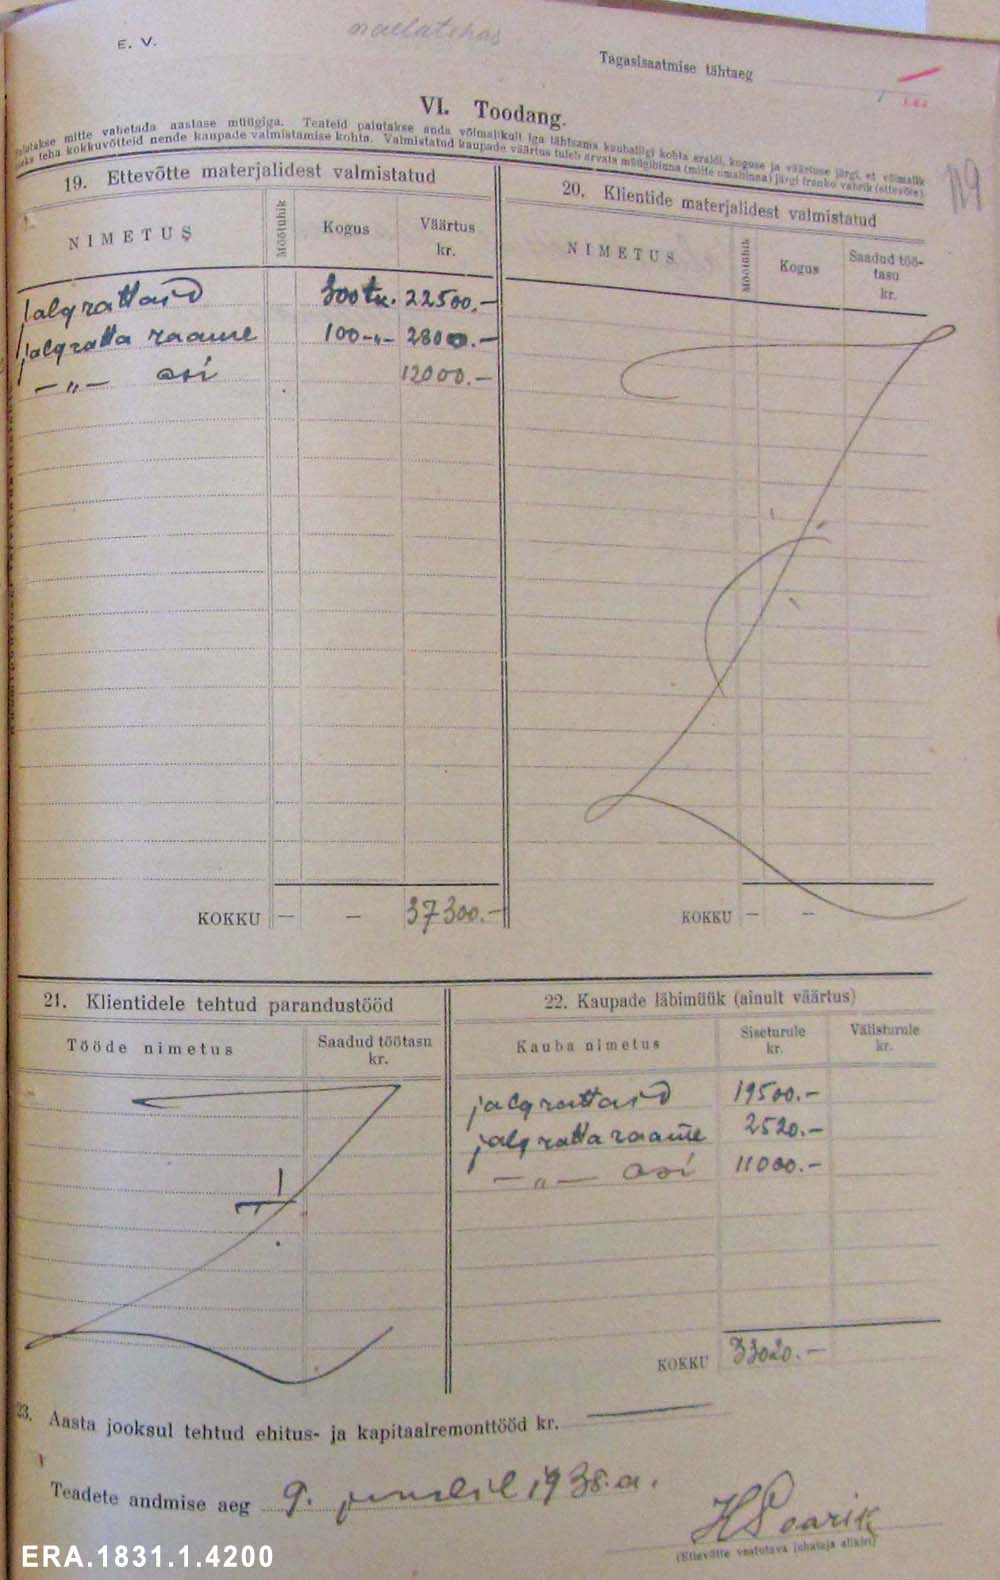 E. V.
naelatehas
Tagasisaatmise tähtaeg
119
VI. Toodang.
Palutakse mitte vahetada aastase müügiga. Teateid palutakse anda võimalikult iga tähtsama kaubaliigi kohta eraldi, koguse ja väärtuse järgi, et võimalik
oleks teha kokkuvõtteid nende kaupade valmistamise kohta. Valmistatud kaupade väärtus tuleb arvata müügihinna (mitte omahinna) järgi franko vabrik (ettevõte)
19. Ettevõtte materjalidest valmistatud
NIMETUS
Mõõtühik
Kogus
Väärtus
kr.
jalgrattaid 300 tk. 22500.—
jalgratta raame 100 -„- 2800.—
— „ — osi 12000.—
KOKKU — — 37300.—
20. Klientide materjalidest valmistatud
NIMETUS
Mõõtühik
Kogus
Saadud töö-
tasu
kr.
KOKKU — —
21. Klientidele tehtud parandustööd
Tööde nimetus
Saadud töötasu
kr.
22. Kaupade läbimüük (ainult väärtus)
Kauba nimetus
Siseturule
kr.
Välisturule
kr.
jalgrattaid 19500.—
jalgratta raame 2520.—
— „ — osi 11000.—
KOKKU 33020.—
23. Aasta jooksul tehtud ehitus- ja kapitaalremonttööd kr. —
Teadete andmise aeg 9. juulil 1938.a.
(Ettevõtte vastutava juhataja allkiri)
ERA.1831.1.4200